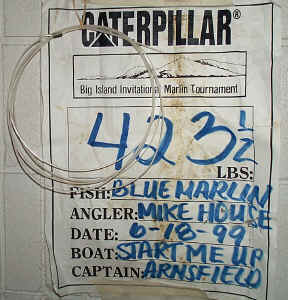 CATERPILLAR®
Big Island Invitational Marlin Tournament
423 1/2
LBS:
FISH: BLUE MARLIN
ANGLER: MIKE HOUSE
DATE: 6-18-99
BOAT: START ME UP
CAPTAIN: ARNSFIELD